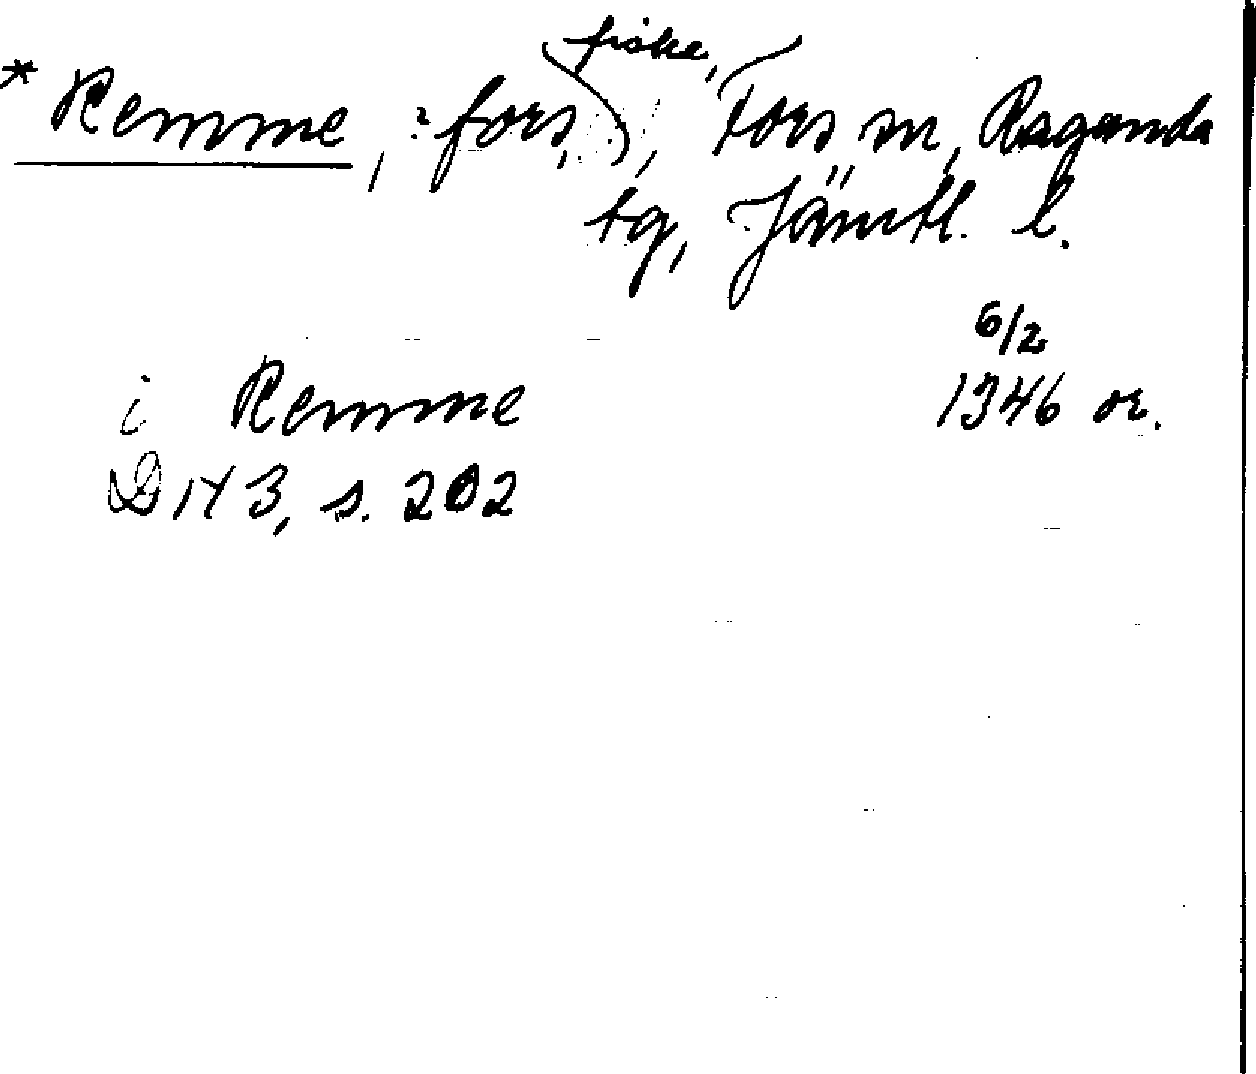 * Remme, ?fors, fiske, Fors sn, Ragunda
tg, Jämtl. l.
6/2
i Remme 1346 or.
DH 3, s. 202